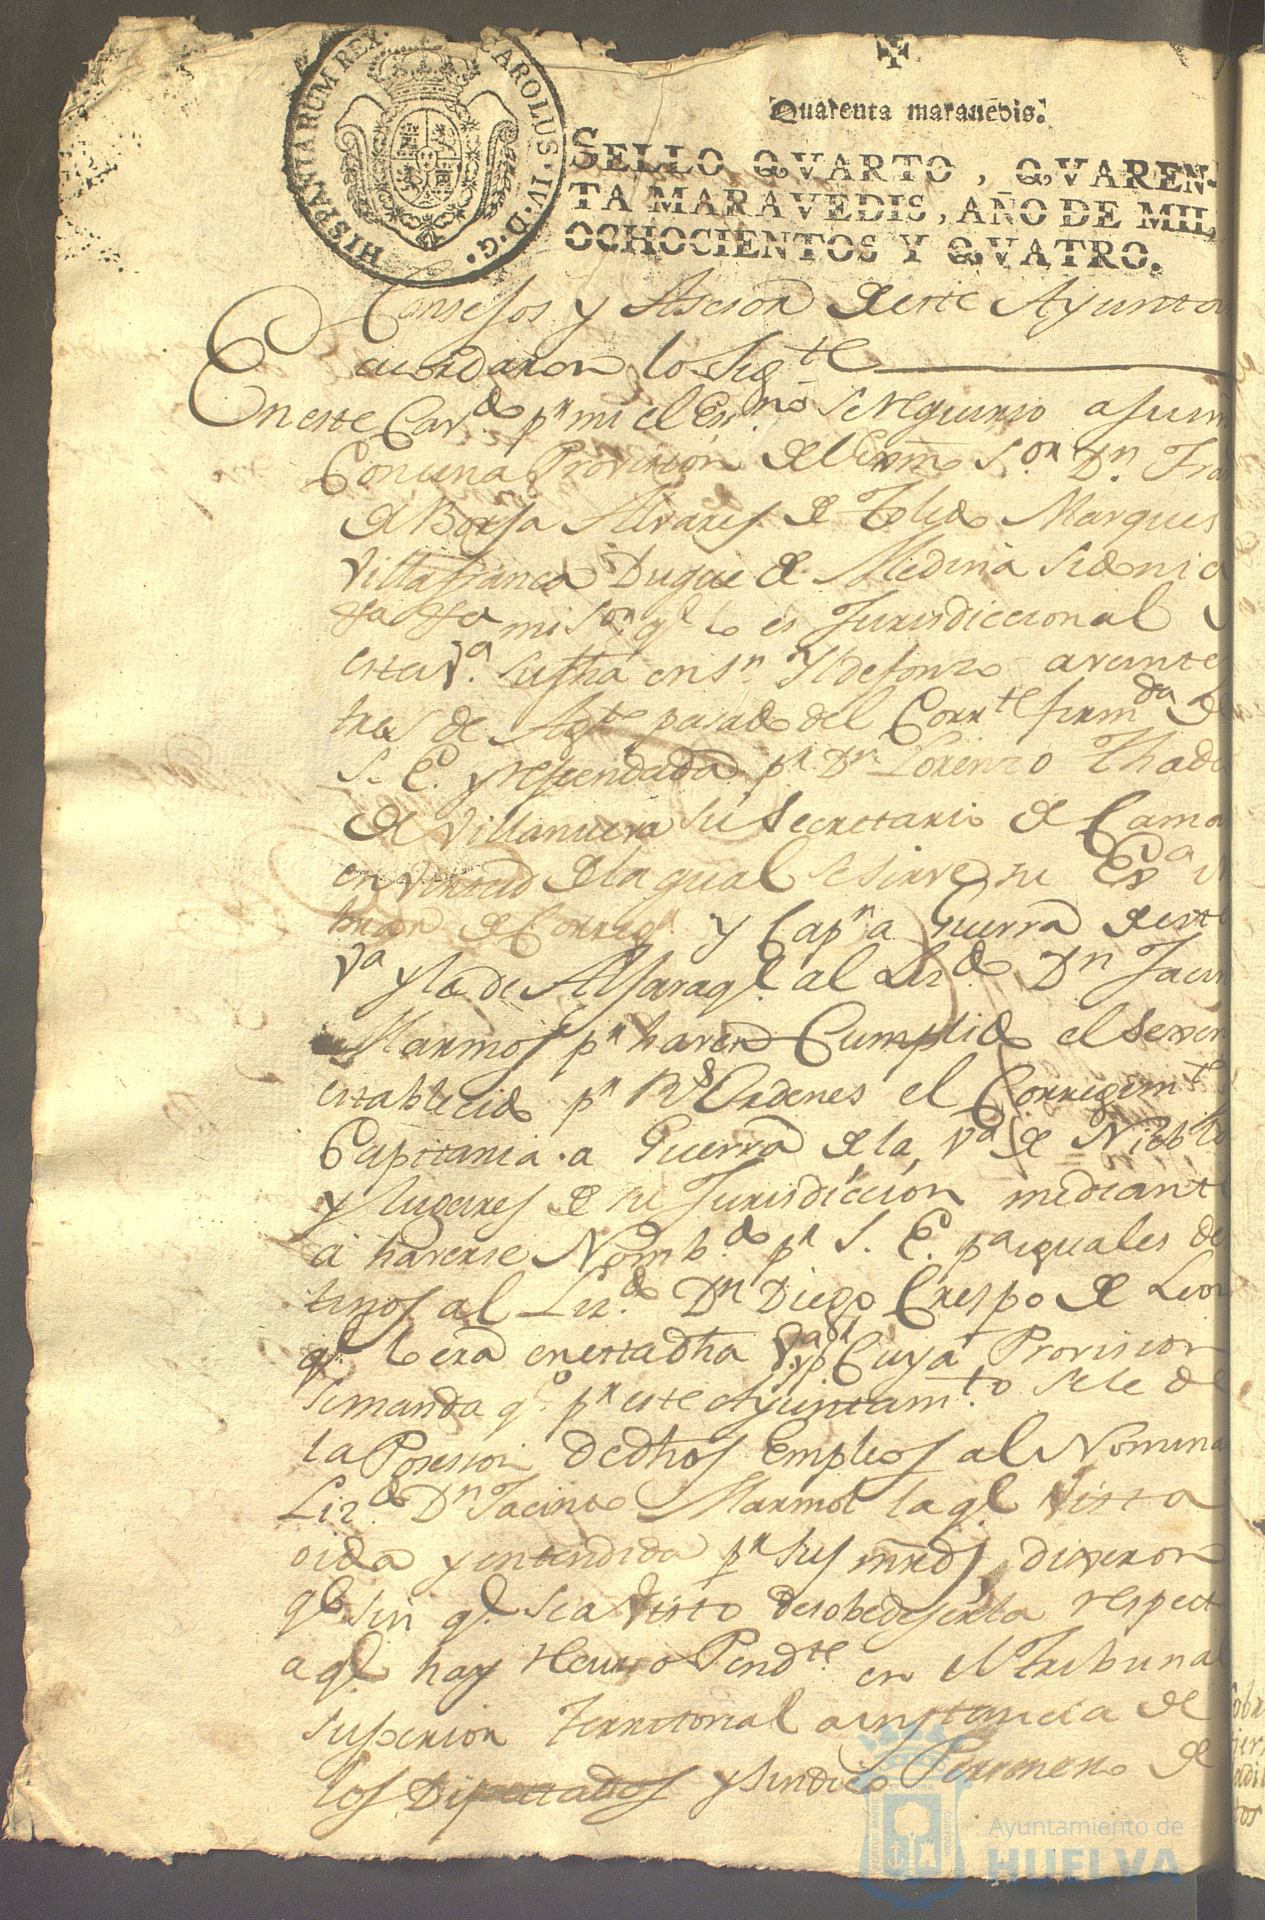 HISPANIARUM REX. CAROLUS·IV·D·G·
Quarenta maravedis.
SELLO QVARTO, QVAREN-
TA MARAVEDIS, AÑO DE MIL
OCHOCIENTOS Y QVATRO.
Consejos y Asesor de este Ayunta
cuordaron lo Sigte
En este Cavdo pr mi el Esnno se requirio a su
Con una Provision del Exmo Sor Dn Fra
de Borja Alvares de Toledo Marques
Villafranca Duque de Medina Sidonia
mi Sor ql lo es Jurisdiccional
esta Va su fha en Sn Yldefonzo a veinte
tres de Agte pasado del Corrte firmda de
S. E. y refrendada pr Dn Lorenzo Thade
de Villanueva su Secretario de Cama
en virtud de la qual se sirve su Exa
de Corregr y Capn a Guerra de este
Va y la de Alfaraqe al Lizdo Dn Jacin
Marmol pr haver Cumplido el sexen
establecido pr Rs Ordenes el Corregimto
Capitania a Guerra de la Va de Niebla
y lugares de su Jurisdiccion mediante
a haverse Nombdo pr S. E. pa iguales de
tinos al Lizdo Dn Diego Crespo de Leon
ql lo era en esta dha Va pr Cuya Provision
se manda qe pr este Ayuntamto se le de
la Posesion de dhos Empleos al Nomina
Lizdo Dn Jacinto Marmol la ql Vista
oida y entendida pr sus mrds, dixeron
qe sin ql sea visto desobedeserla respect
a ql hay recurso Pendte en el Tribunal
Superior Territorial a instancia de
los Diputados y Sindico Personero de
Ayuntamiento de
HUELVA